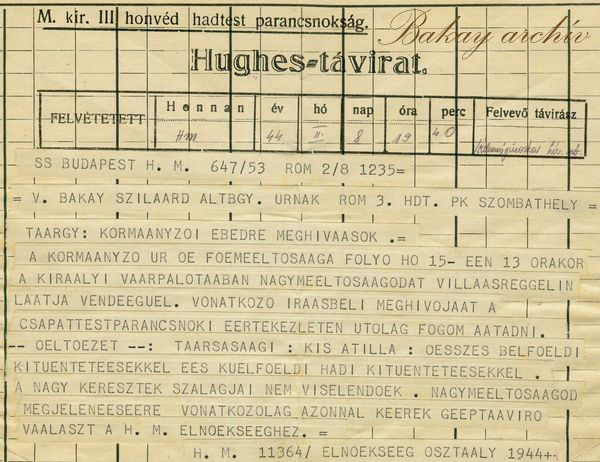 M. kir. III honvéd hadtest parancsnokság.
Bakay archív
Hughes-távirat.
FELVÉTETETT Honnan év hó nap óra perc Felvevő távirász
Hm 44 II. 8 19 40
SS BUDAPEST H. M. 647/53 ROM 2/8 1235=
= V. BAKAY SZILAARD ALTBGY. URNAK ROM 3. HDT. PK SZOMBATHELY =
TAARGY: KORMAANYZOI EBEDRE MEGHIVAASOK .=
A KORMAANYZO UR OE FOEMEELTOSAAGA FOLYO HO 15- EEN 13 ORAKOR
A KIRAALYI VAARPALOTAABAN NAGYMEELTOSAAGODAT VILLAASREGGELIN
LAATJA VENDEEGUEL. VONATKOZO IRAASBELI MEGHIVOJAAT A
CSAPATTESTPARANCSNOKI EERTEKEZLETEN UTOLAG FOGOM AATADNI.
-- OELTOEZET --: TAARSASAAGI : KIS ATILLA : OESSZES BELFOELDI
KITUENTETEESEKKEL EES KUELFOELDI HADI KITUENTETEESEKKEL .
A NAGY KERESZTEK SZALAGJAI NEM VISELENDOEK . NAGYMEELTOSAAGOD
MEGJELENEESEERE VONATKOZOLAG AZONNAL KEEREK GEEPTAAVIRO
VAALASZT A H. M. ELNOEKSEEGHEZ. =
H. M. 11364/ ELNOEKSEEG OSZTAALY 1944+-